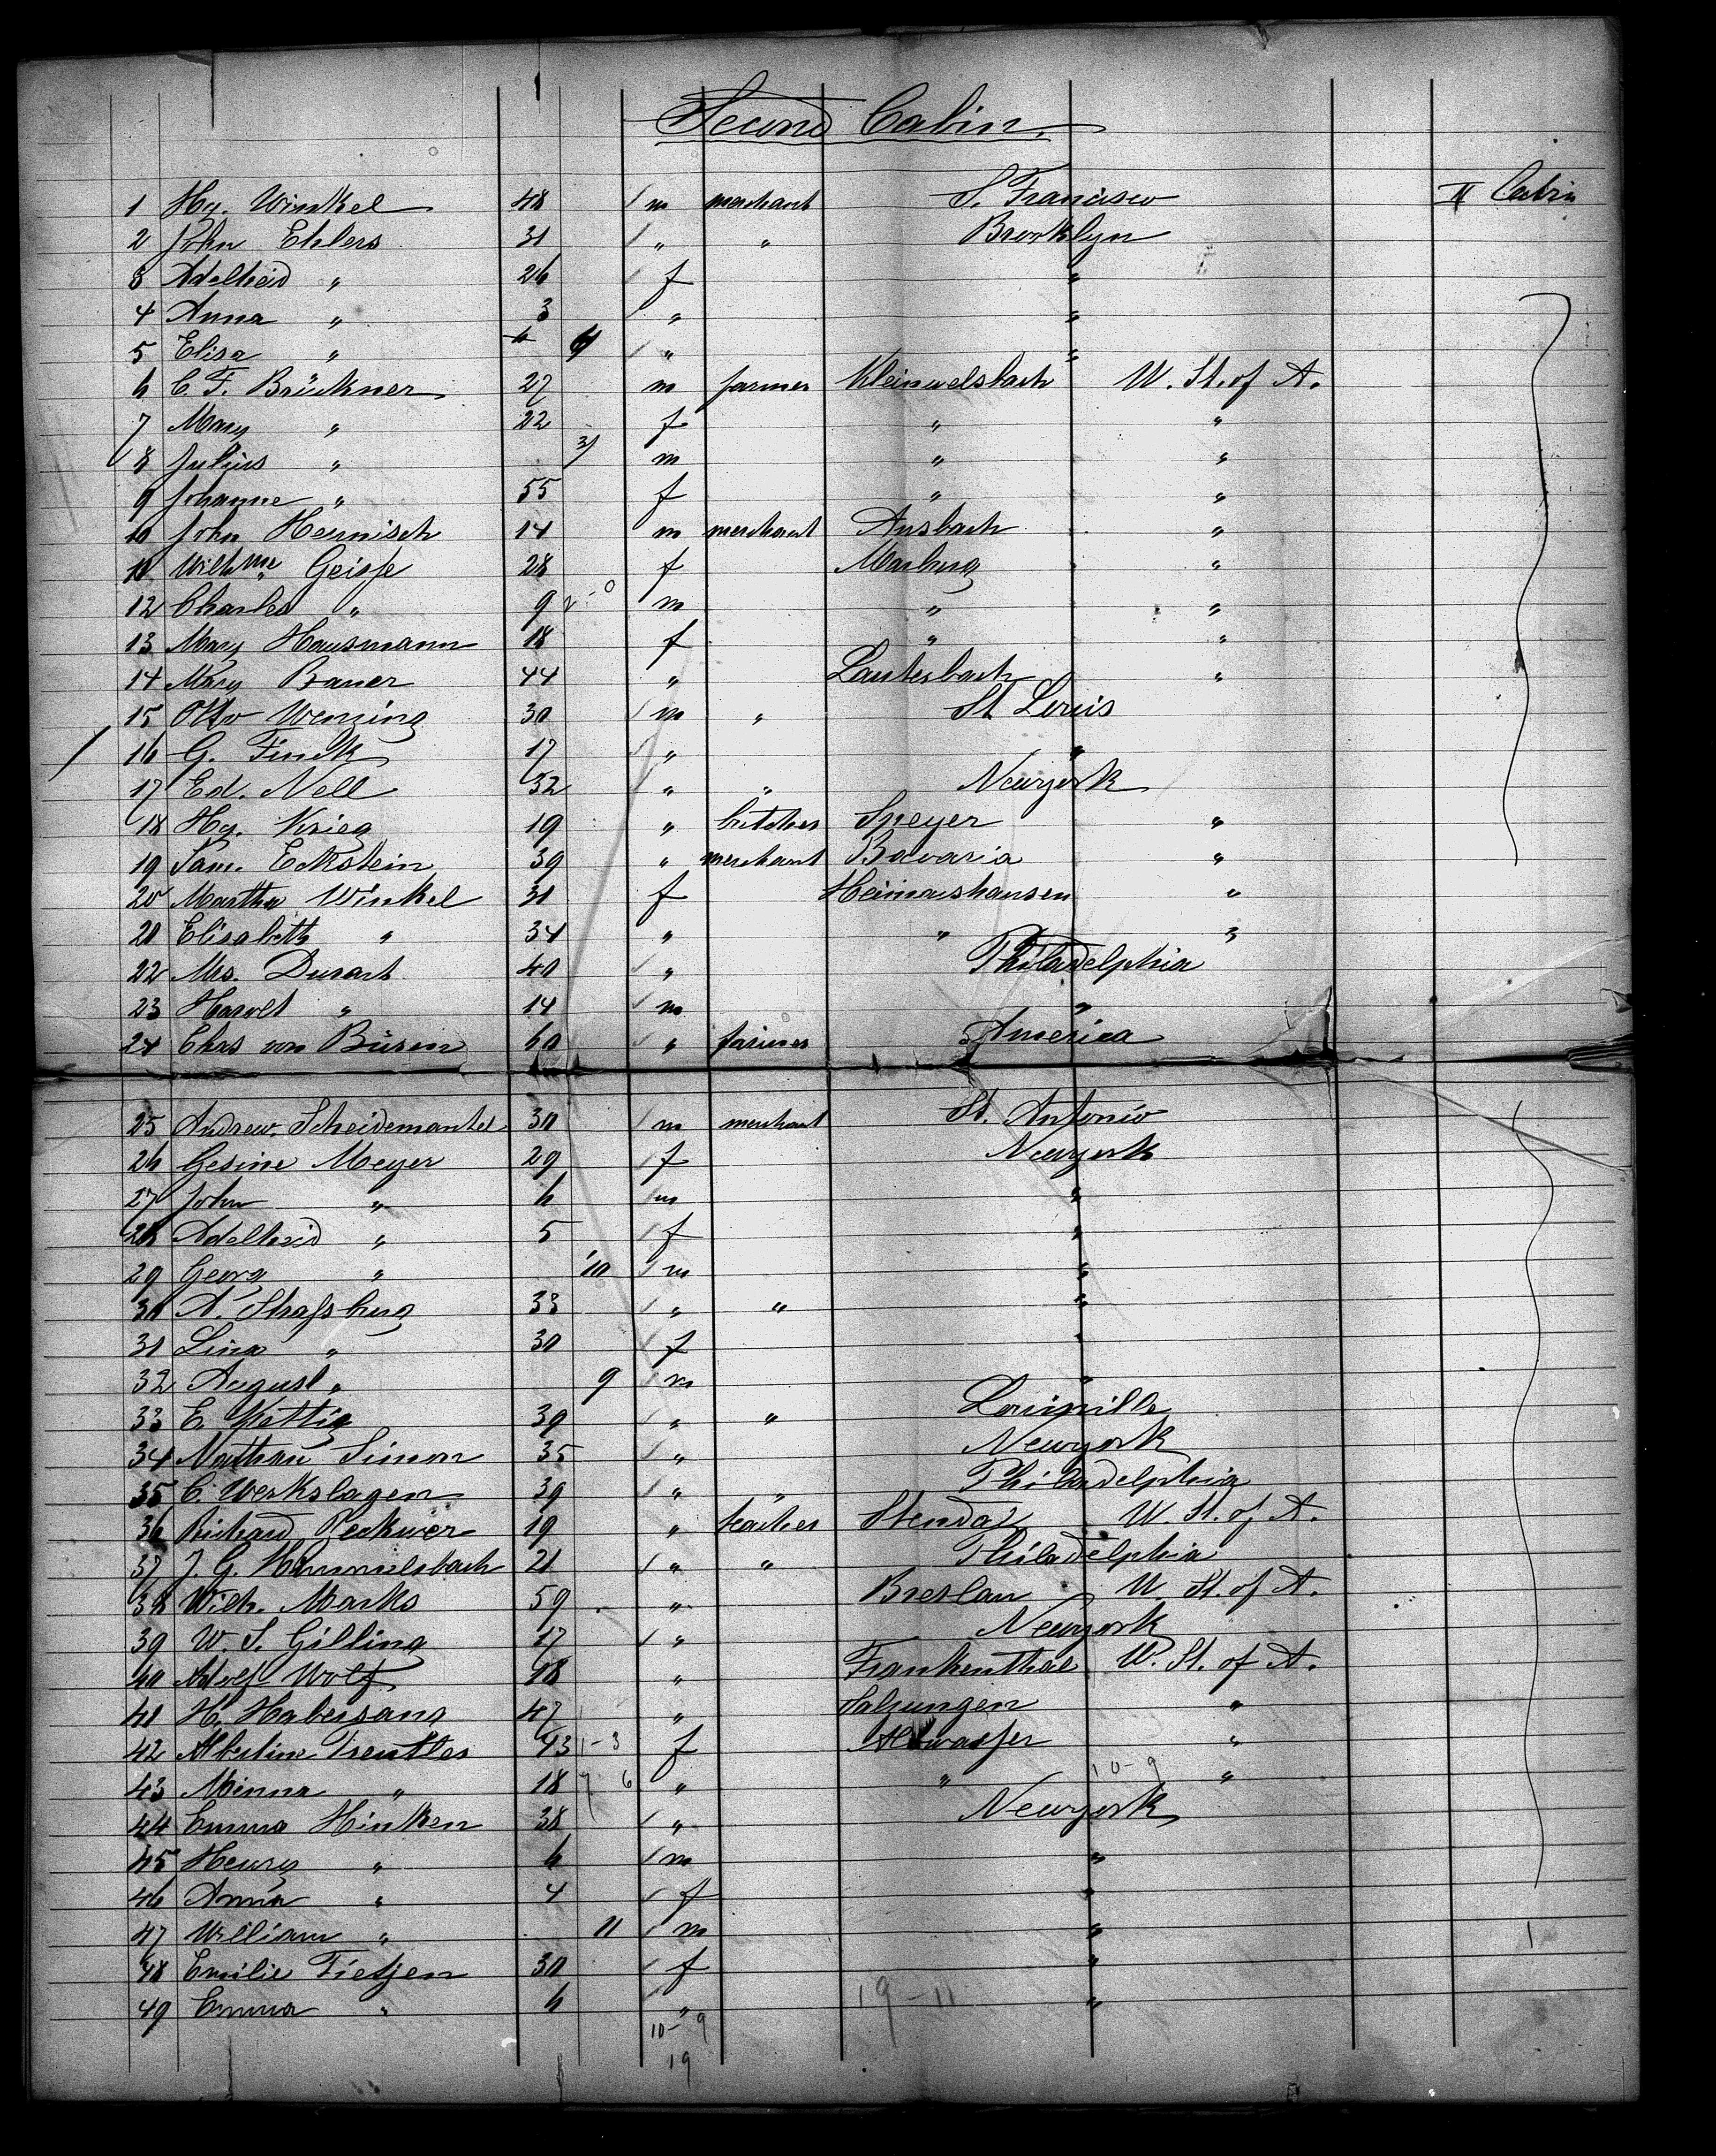 Second Cabin.
1 Hy. Winkel 48 m merchant S. Francisco II Cabin
2 John Ehlers 31 " " Brooklyn
3 Adelheid " 26 f "
4 Anna " 3 " "
5 Elisa " " "
6 C. F. Brückner 27 m farmer Kleinwelsbach U. St. of A.
7 Mary " 22 f " "
8 Julius " 3 m " "
9 Johanne " 55 f " "
10 John Heunisch 14 m merchant Ansbach "
11 Wilhme Geisse 28 f Marburg "
12 Charles " 9 m " "
13 Mary Hausmann 18 f " "
14 Mary Bauer 44 " Lauterbach "
15 Otto Wenzing 30 m " St Louis
16 G. Finck 17 " "
17 Ed. Nell 32 " " Newyork
18 Hy. Krieg 19 " butcher Speyer "
19 Sam. Eckstein 39 " merchant Bavaria "
20 Martha Winkel 31 f Heimarshausen "
21 Elisabeth " 34 " " "
22 Mrs. Durart 40 " Philadelphia
23 Harolt " 14 m "
24 Chas von Büren 60 " farmer America
25 Andrew Scheidemantel 30 m merchant St. Antonio
26 Gesine Meyer 29 f Newyork
27 John " 6 m "
28 Adelheid " 5 f "
29 Georg " 10 m "
30 A. Strassburg 33 " " "
31 Lina " 30 f "
32 August " 9 m "
33 E. Rettig 39 " " Louisville
34 Nathan Simon 35 " Newyork
35 C. Werkslagen 39 " " Philadelphia
36 Richard 19 " teacher Stendal U. St. of A.
37 J. G. Himmelsbach 21 " " Philadelphia
38 Wilh. Marks 59 " Breslau U. St. of A.
39 W. S. Gilling 17 " Newyork
40 Adolf Wolf 18 " Frankenthal U. St. of A.
41 H. Habersang 47 " Salzungen "
42 Albertine Treutler 43 1-3 f Altwasser "
43 Minna " 18 7 6 " " 10-9 "
44 Emma Hinken 38 " Newyork
45 Henry " 6 m "
46 Anna " 4 f "
47 William " 11 m "
48 Emilie Tietjen 30 f "
49 Emma " 6 " 19-11 "
10-9
19